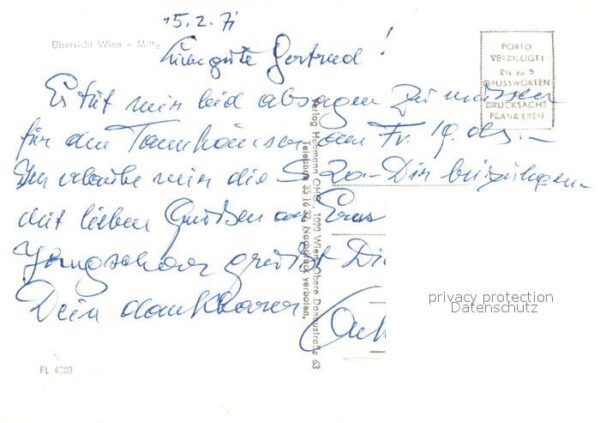 15.2.71
Übersicht Wien - Mitte
gute Gertrud!
Es tut mir leid absagen zu müssen
für den Tannhäuser am Fr. 19. ds. –
Ich erlaube mir die S 20.- Dir beizulegen -
mit lieben Grüßen
grüßt Dich
Dein dankbarer
PORTO
VERBILLIGT:
Bis zu 5
GRUSSWORTEN
DRUCKSACHE
FRANKIEREN
Verlag Hubmann OHG, 1020 Wien, Obere Donaustraße 63
Telephon 35 16 32, Nachdruck verboten.
privacy protection
Datenschutz